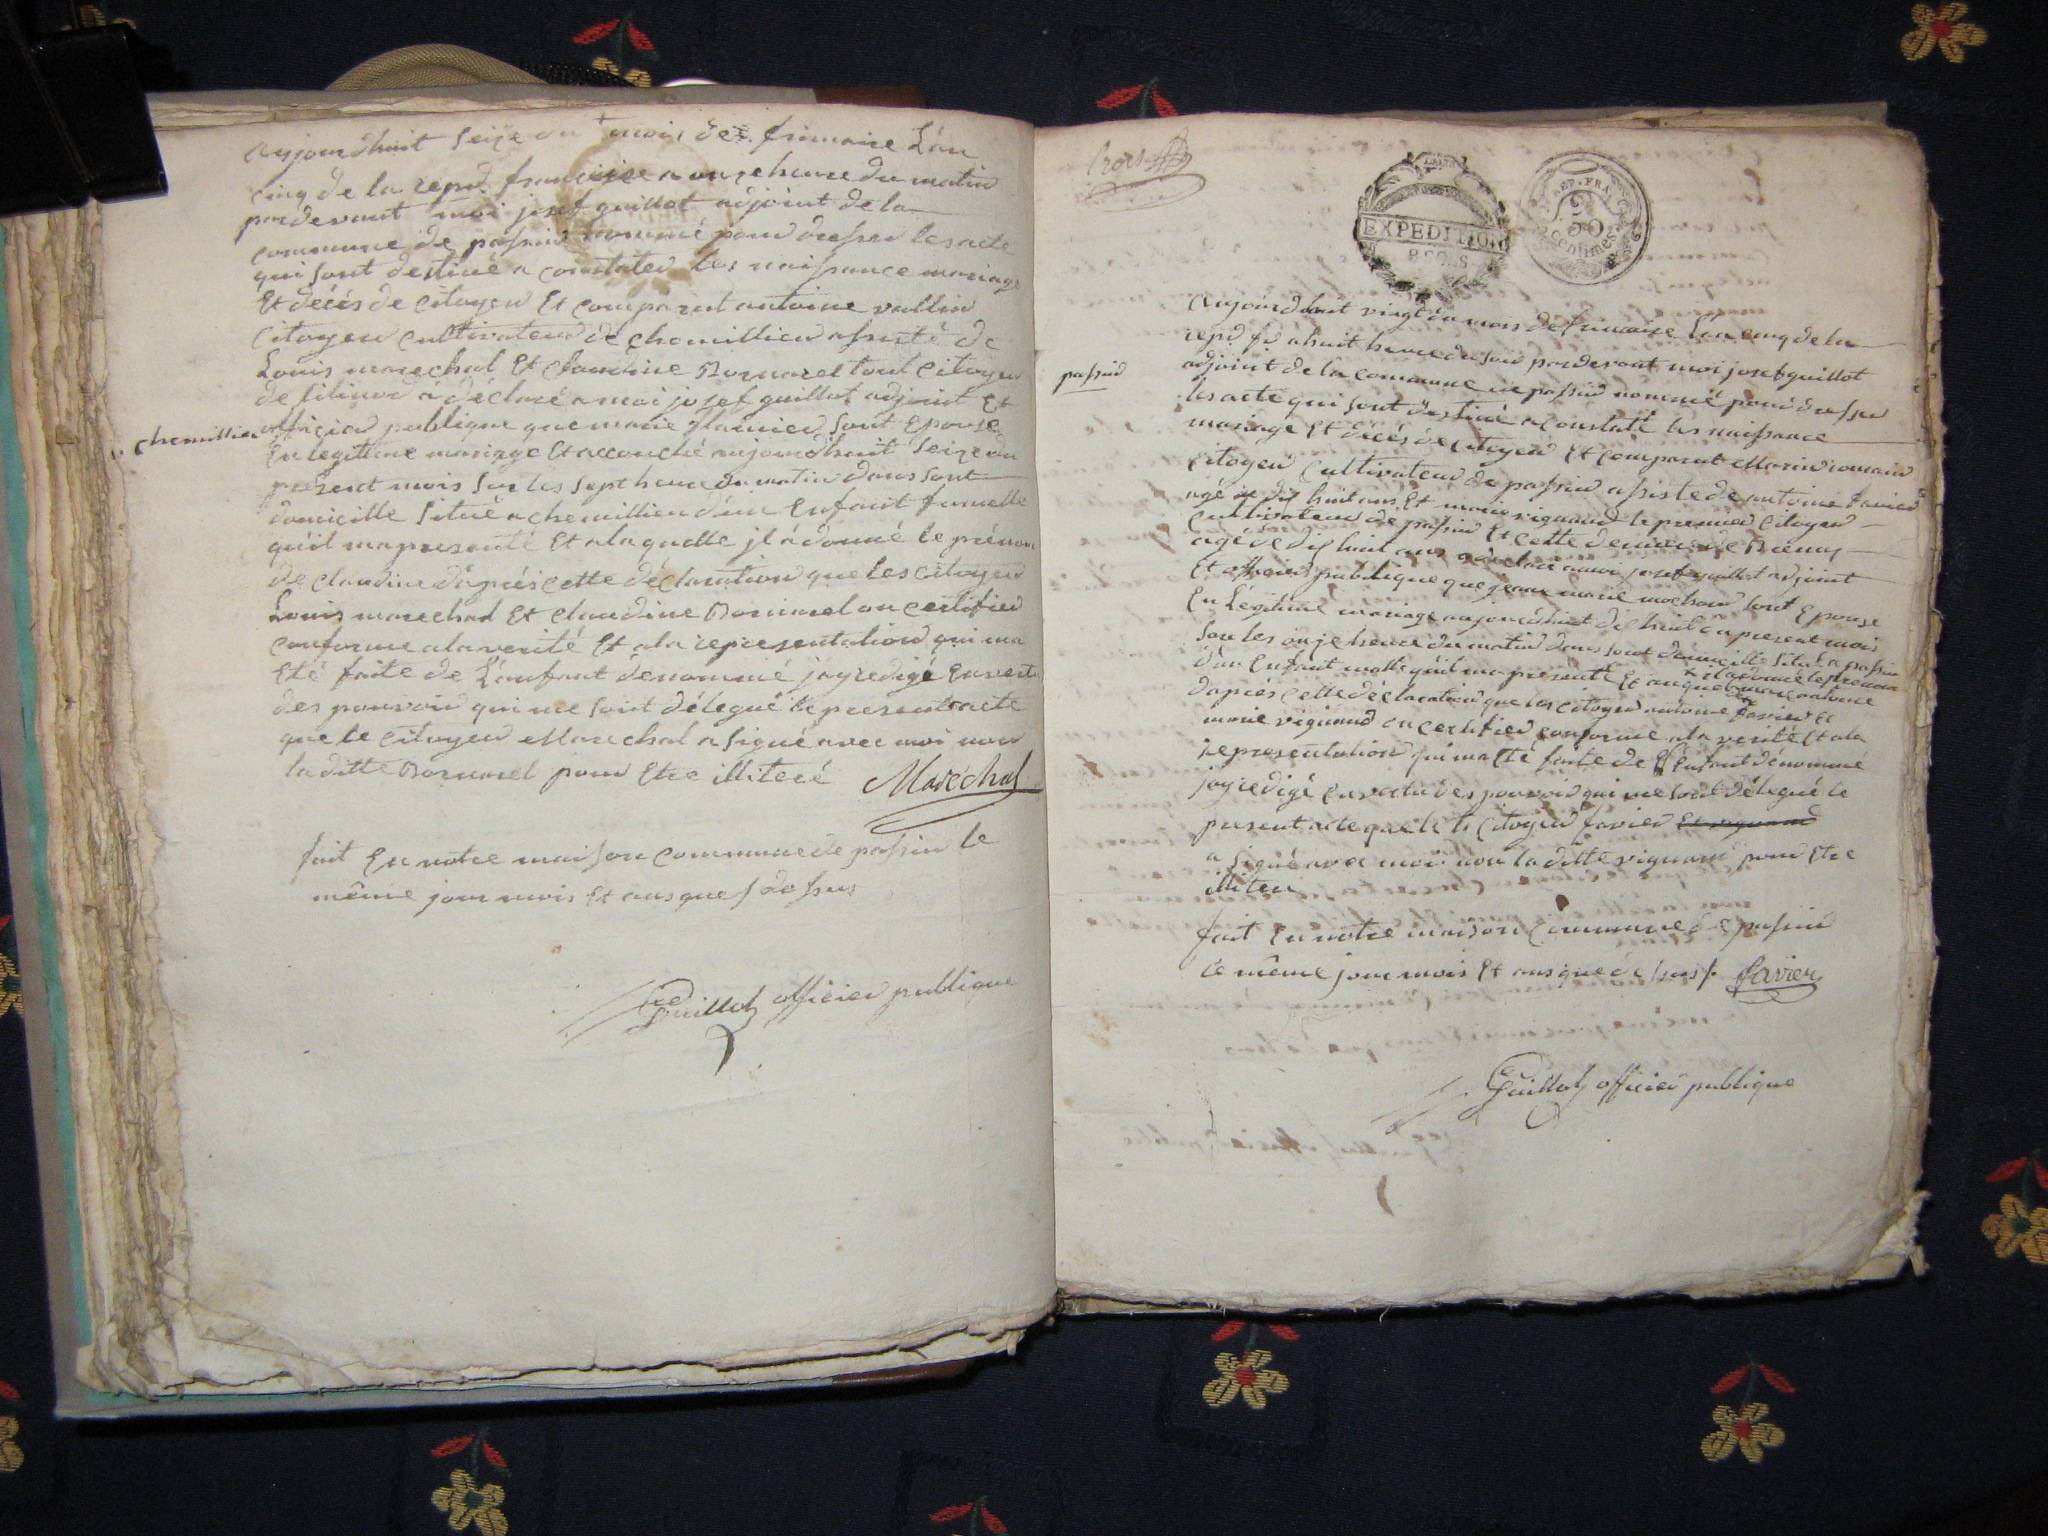 aujourdhuit seize du mois de frimaire L'an
cinq de la repd. francaise a onze heure du matin
pardevant moi josef guillot adjoint de la
commune de passin nommé pour dresser les acte
qui sont destiné a constater les naissance mariage
Et décés de citoyen Et comparut antoine vallin
citoyen cultivateur de chemillieu assisté de
Louis marechal Et claudine Bornarel tout citoyen
de a déclaré a moi josef guillot adjoint Et
chemillieu
officier publique que marie sont Epouse
En legitime mariage Et accouché aujourdhuit seize du
present mois sur les sept heure du matin dans sont
domicille situé a chemillieu d'un Enfant fumelle
qu'il ma presenté Et a laquelle jl a donné le prénom
de claudine d'aprés cette déclaration que les citoyen
Louis marechal Et claudine Bornarel on certifier
conforme a la verité Et a la representation qui ma
Eté faite de L'enfant denommé j'ay redigé En vertu
des pouvoir qui me sont délegué le present acte
que le citoyen Marechal a signé avec moi non
la ditte Bornarel pour Etre illiteré Maréchal
fait En notre maison commune de passin le
même jour mois Et ans que dessus
Guillot officier publique
trois
EXPEDITION
REP. FRA.
30 centimes
aujourdhuit vingt du mois de frimaire L'an cinq de la
repd. fr a huit heure du soir pardevant moi josef guillot
passin
adjoint de la commune de passin nommé pour dresser
les acte qui sont destiné a constaté les naissance
mariage Et décés de citoyen Et comparut Marin romain
citoyen cultivateur de passin assisté de antoine favier
agé de dix huit ans Et marie vignand le premier citoyen
cultivateur de passin Et cette derniere de
agé de dix huit ans a déclaré a moi josef guillot adjoint
Et officier publique que jeanne marie mochon sont Epouse
En Légitime mariage aujourdhuit dix huit du present mois
sur les onze heure du matin dans sont domicille situé a passin
d'un Enfant malle qu'il ma presenté Et auquel jl a donné le prenom
antoine
d'aprés cette déclaration que les citoyen antoine favier Et
marie vignand on certifier conforme a la verité Et a la
representation qui ma Eté faite de L'Enfant dénommé
j'ay redigé En vertu des pouvoir qui me sont délegué le
present acte que le citoyen favier Et vignand
a signé avec moi non la ditte vignand pour Etre
illiteré
fait En notre maison commune de passin
le même jour mois Et ans que dessus favier
Guillot officier publique